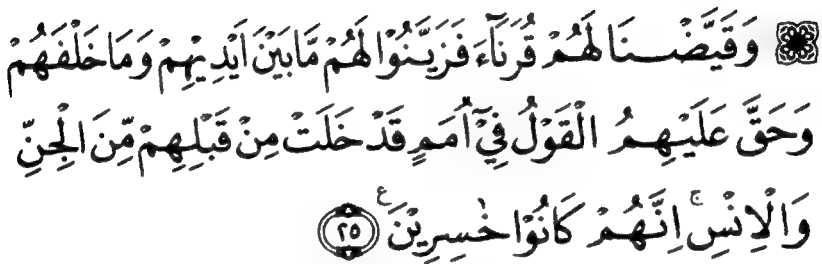 ۞ وَقَيَّضْنَا لَهُمْ قُرَنَآءَ فَزَيَّنُوْا لَهُمْ مَّا بَيْنَ اَيْدِيْهِمْ وَمَا خَلْفَهُمْ
وَحَقَّ عَلَيْهِمُ الْقَوْلُ فِيْٓ اُمَمٍ قَدْ خَلَتْ مِنْ قَبْلِهِمْ مِّنَ الْجِنِّ
وَالْاِنْسِۚ اِنَّهُمْ كَانُوْا خٰسِرِيْنَ ࣖ ٢٥